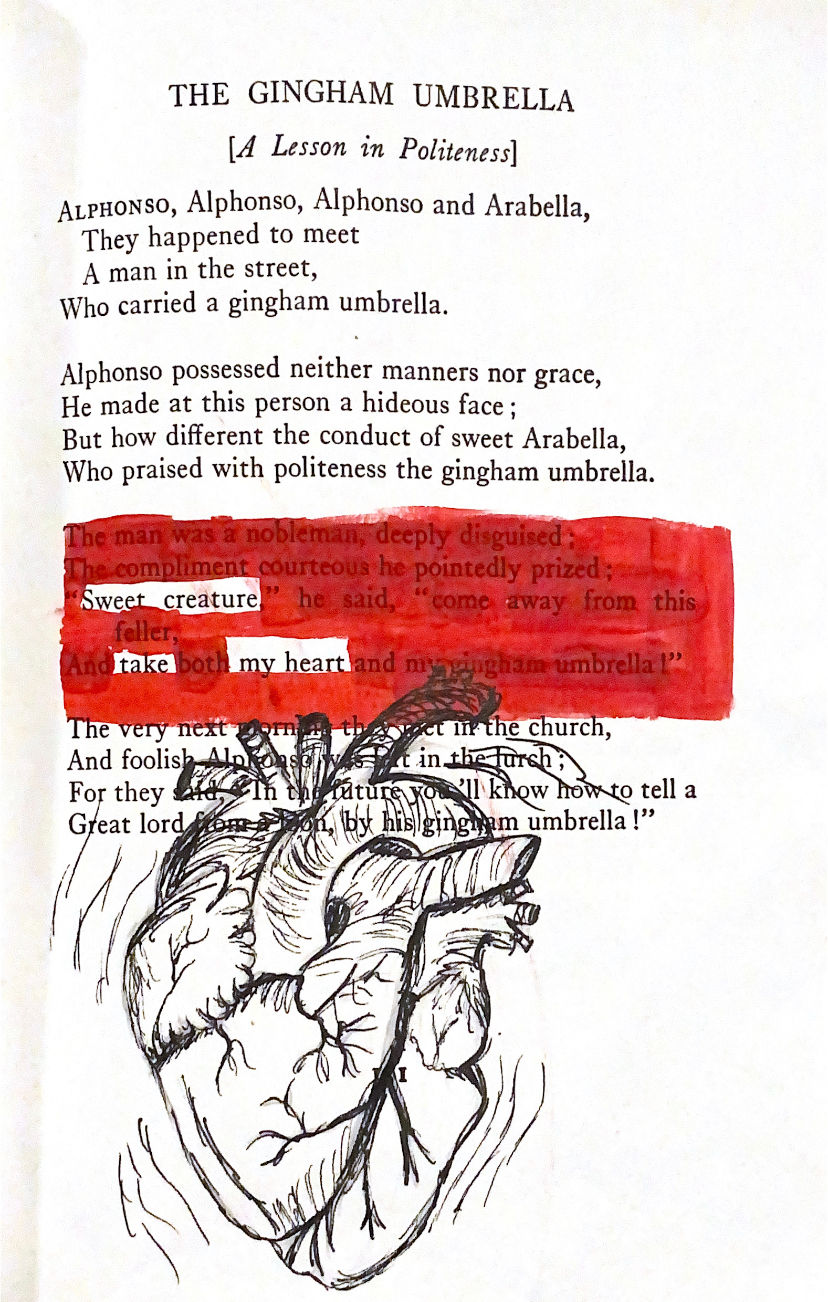 THE GINGHAM UMBRELLA
[A Lesson in Politeness]
ALPHONSO, Alphonso, Alphonso and Arabella,
They happened to meet
A man in the street,
Who carried a gingham umbrella.
Alphonso possessed neither manners nor grace,
He made at this person a hideous face;
But how different the conduct of sweet Arabella,
Who praised with politeness the gingham umbrella.
The man was a nobleman, deeply disguised;
The compliment courteous he pointedly prized;
"Sweet creature," he said, "come away from this
feller,
And take both my heart and my gingham umbrella!"
The very next morning they met in the church,
And foolish Alphonso was left in the lurch;
For they said, "In the future you'll know how to tell a
Great lord from a loon, by his gingham umbrella!"